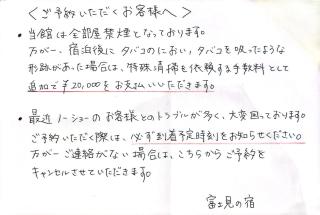 〈ご予約いただくお客様へ〉
• 当館は全部屋禁煙となっております。
万が一、宿泊後にタバコのにおい、タバコを吸ったような
形跡があった場合は、特殊清掃を依頼する手数料として
追加で¥20,000をお支払いいただきます。
• 最近ノーショーのお客様とのトラブルが多く、大変困っております。
ご予約いただく際は、必ず到着予定時刻をお知らせください。
万が一ご連絡がない場合は、こちらからご予約を
キャンセルさせていただきます。
富士見の宿